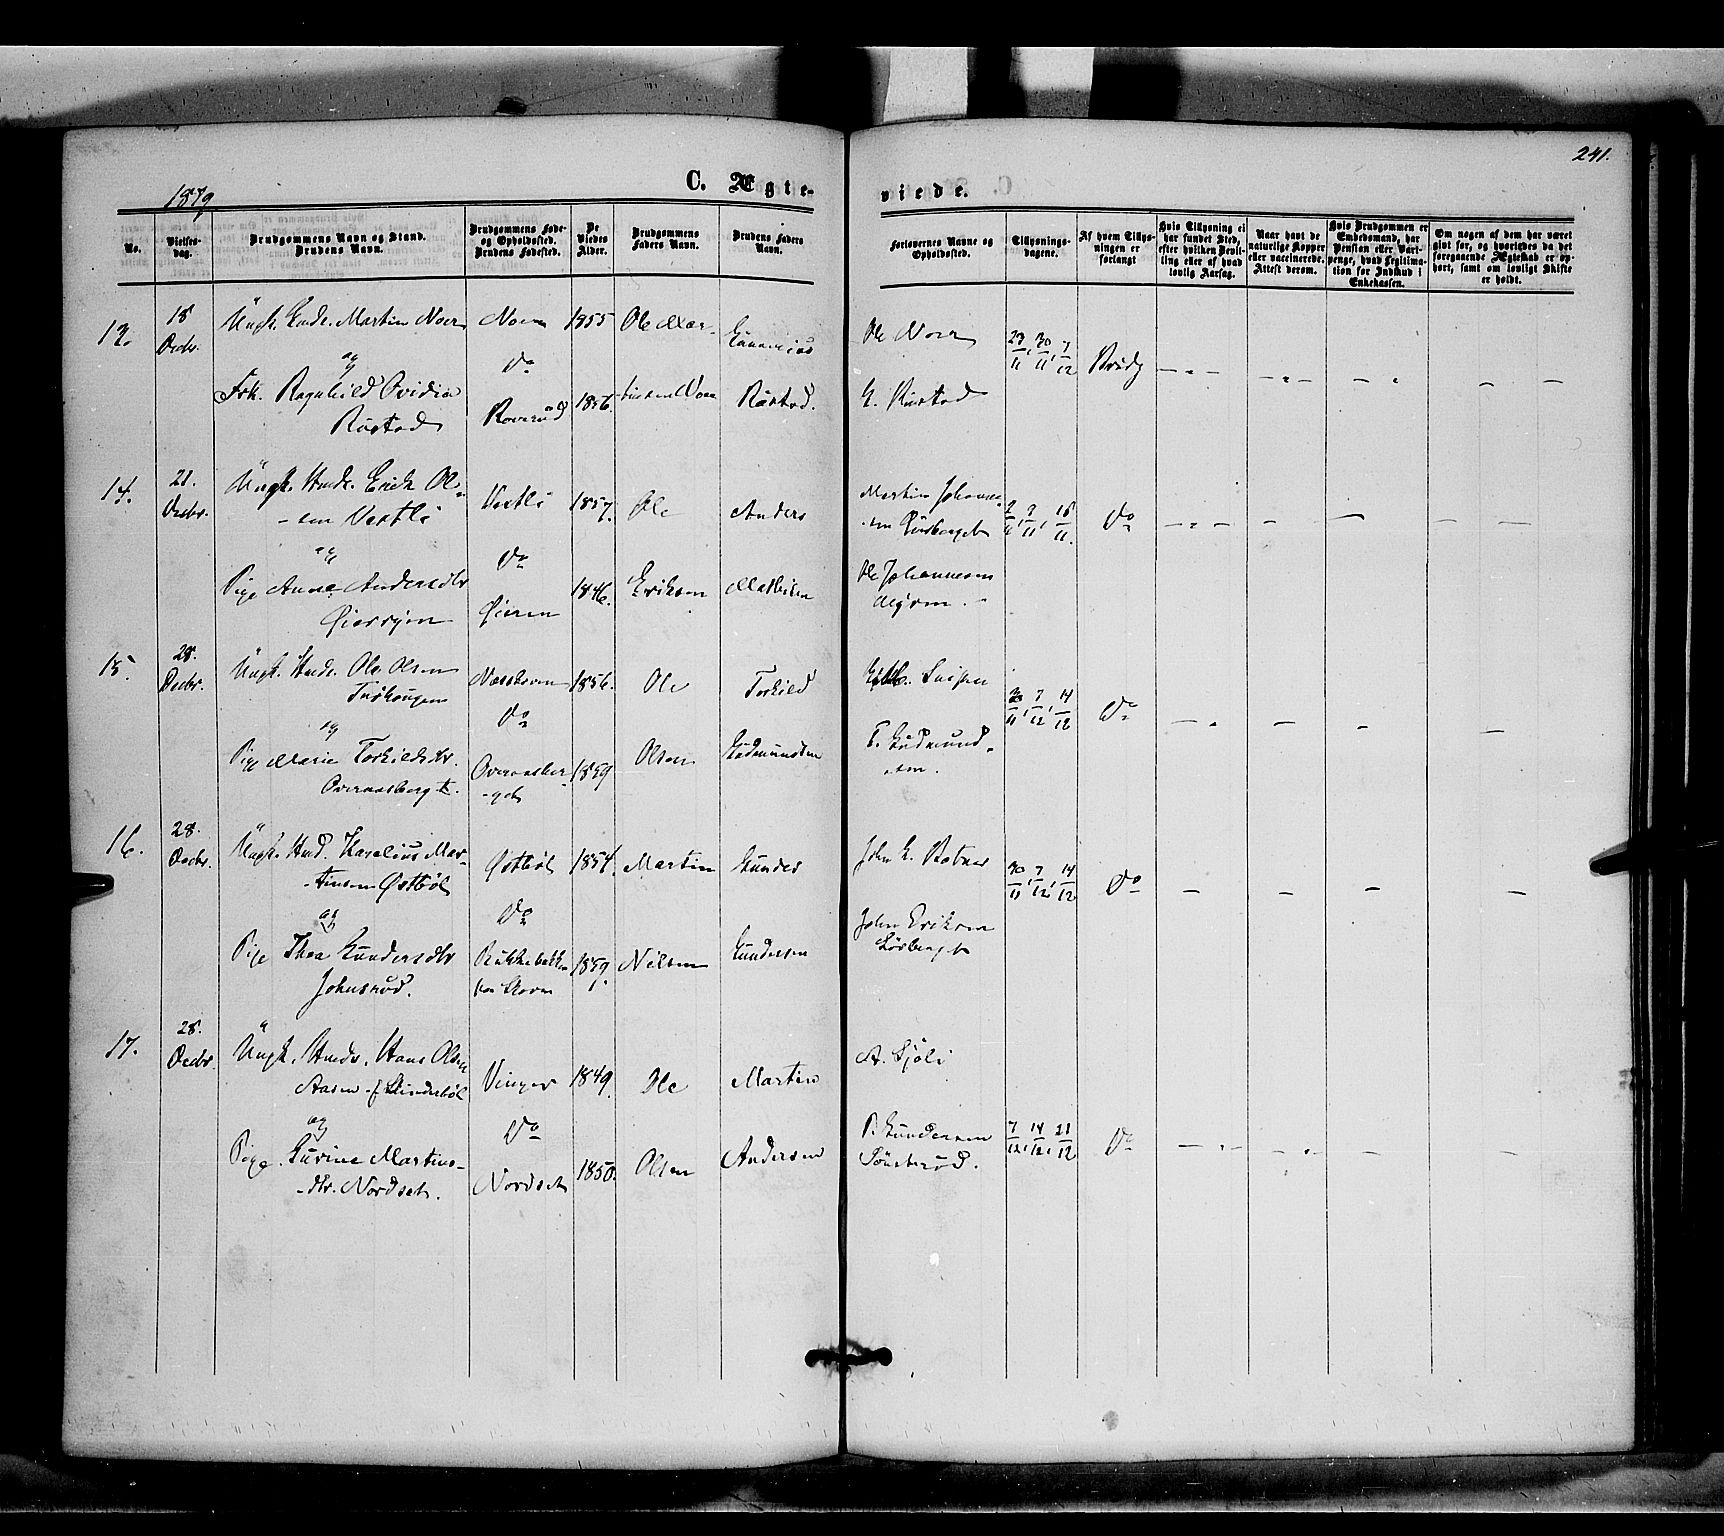 241.
1879
C. Ægte-
viede.
No.
Vielses-
dag.
Brudgommens Navn og Stand.
Brudens Navn.
Brudgommens Føde-
og Opholdssted.
Brudens Fødested.
De
Viedes
Alder.
Brudgommens
Faders Navn.
Brudens Faders
Navn.
Forlovernes Navne og
Opholdssted.
Tillysnings-
dagene.
Af hvem Tillys-
ningen er
forlangt
Hvis Tillysning ei
har fundet Sted,
efter hvilken Bevil-
ling eller af hvad
lovlig Aarsag.
Naar havt de
naturlige Kopper
eller vaccinerede.
Attest derom.
Hvis Brudgommen er
Embedsmand, har
Pension eller Vart-
penge, hvad Legitima-
tion for Indskud i
Enkekassen.
Om nogen af dem har været
givt før, og hvorledes da det
foregaaende Ægteskab er op-
hørt, samt om lovligt Skifte
er holdt.
13.
18
Decbr.
Ungk. Martin Noer
og
Frk. Ragnhild Ovidia
Rustad
Do
Roverud
1855
1856.
Ole Mar-
Rustad.
Ole Noer
G. Rustad
23/11, 30/11, 7/12
Brudg
14.
21.
Decbr.
Ungk. Hmdr. Erick Ol-
-sen Vestli
og
Pige Anne Andersdtr
Vestli
Do
Øieren
1857.
1846.
Ole
Eriksen
Anders
Mathisen
Martin Johanne-
Ole Johannesen
2/11, 9/11, 16/11.
Do
15.
28.
Decbr.
Ungk. Hmdr. Ole Olsen
og
Pige Marie Torkildsdtr.
Overaasberget.
Do
Overaasber-
-get
1856.
1859
Ole
Olsen
Torkild
Gudmundsen
T. Gudmund-
-sen.
30/11, 7/12, 14/12
Do
16.
28.
Decbr.
Ungk. Hmd. Karelius Mar-
-tinsen Østbøl
og
Pige Thea Gundersdtr
Johnsrud.
Østbøl
Do
1854.
1859.
Martin
Nilsen
Gunder
Gundersen
John G. Rotner
John Eriksen
30/11, 7/12, 14/12
Do
17.
28.
Decbr.
Ungk. Hmdr. Hans Olsen
Aasen
og
Pige. Gurine Martins-
-dtr. Nordset.
Vinger
Do
Nordset
1849.
1850.
Ole
Olsen
Martin
Andersen
A. Sjøli
P. Gundersen
Sønsterud.
7/12, 14/12, 21/12
Do